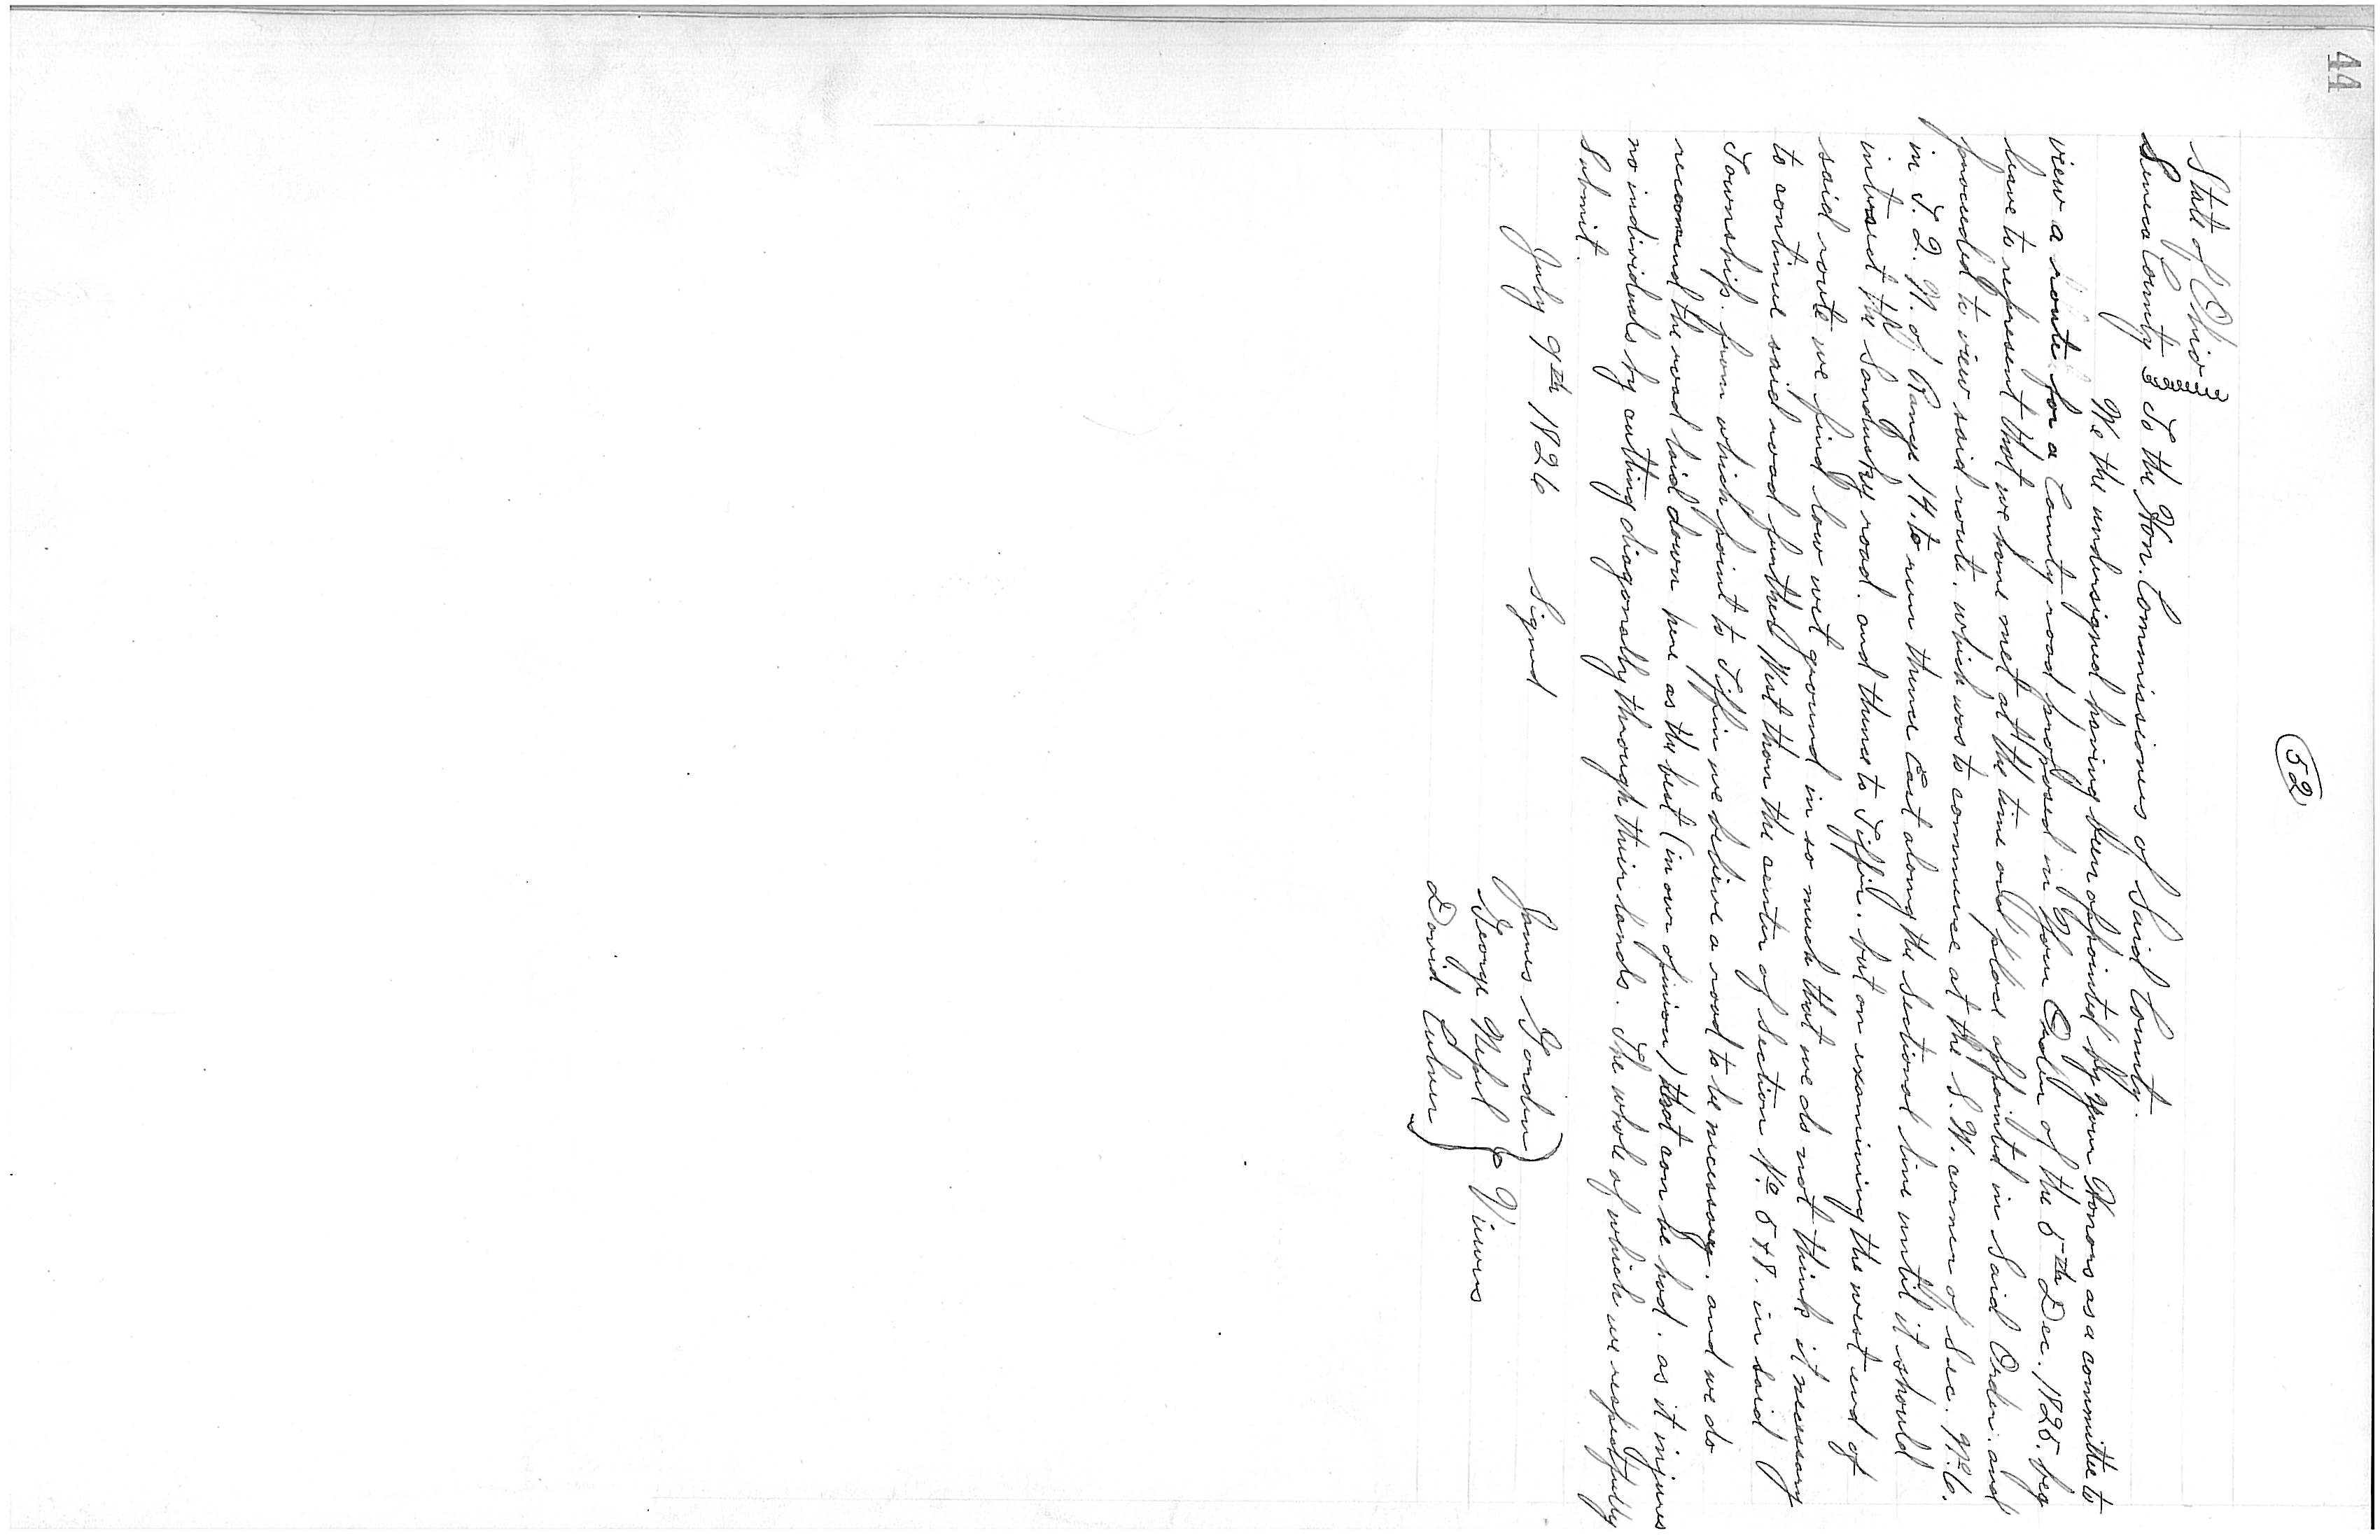 44
52
State of Ohio
Seneca County To the Hon. Commissioners of Said County.
We the undersigned having been appointed by your Honors as a committee to
view a route for a County road proposed in Your Order of the 5th Dec. 1825. beg
leave to represent that we have met at the time and place appointed in Said Order. and
proceeded to view said route. which was to commence at the S.W. corner of Sec. No. 6.
in T. 2. N. of Range 14. to run thence East along the Sectional line until it should
intersect the Sandusky road. and thence to Tiffin. but on examining the west end of
said route we find low wet ground in so much that we do not think it necessary
to continue said road further West than the center of Section No. 5 & 8. in said
Township. from which point to Tiffin we believe a road to be necessary. and we do
recomend the road laid down here as the best (in our opinion) that can be had. as it injures
no individuals by cutting diagonally through their lands. The whole of which we respectfully
Submit.
July 9th 1826 Signed
James Gordon
George Viewers
David Culver